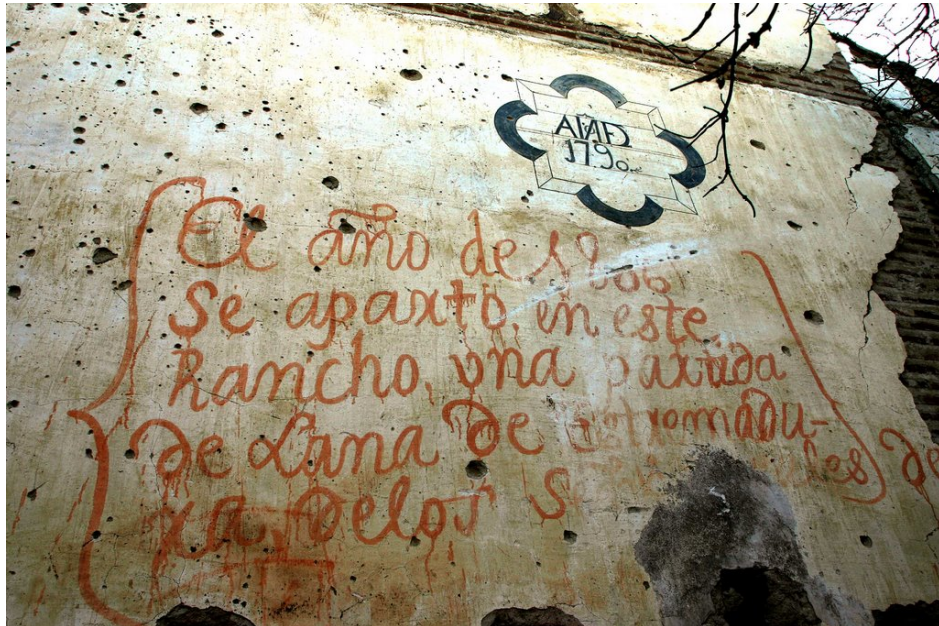 AÑO
1790
El año de
Se aparto, en este
Rancho, vna partida
de Lana de Estremadu-
ra, delos de